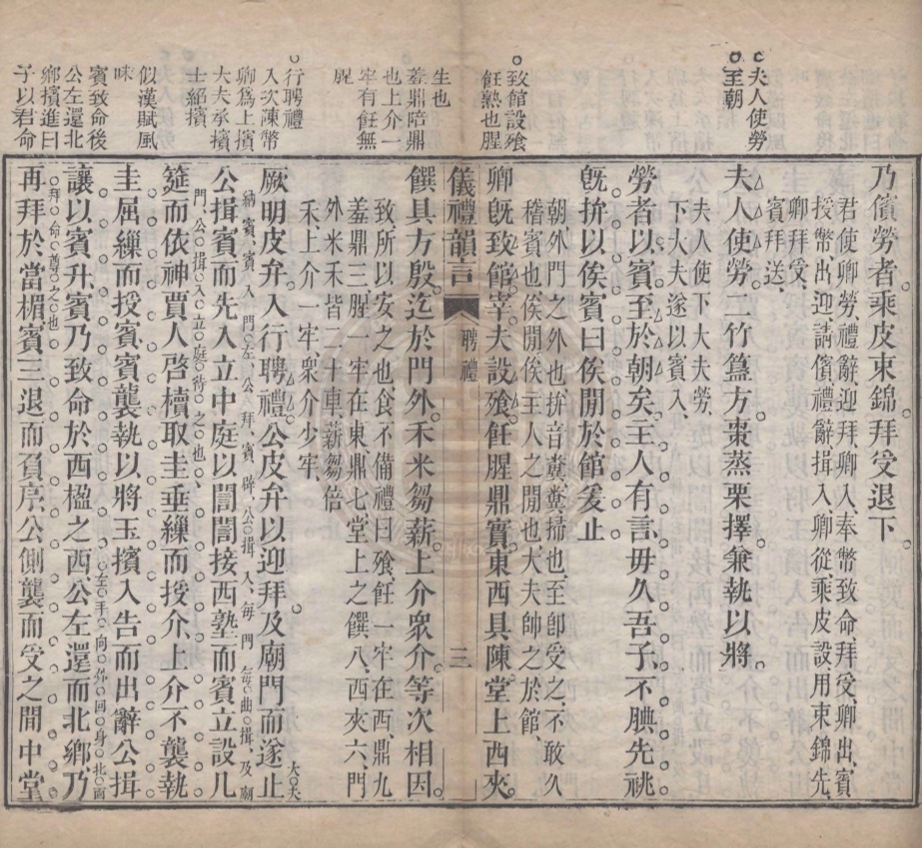 夫人使勞
至朝
致館設飱
飪熟也腥
生也
羞鼎陪鼎
也上介一
牢有飪無
腥
行聘禮
入次陳幣
卿為上擯
大夫承擯
士紹擯
似漢賦風
味
賓致命後
公左還北
鄉擯進曰
子以君命
乃儐勞者乘皮束錦拜受退下
君使卿勞禮辭迎拜卿入奉幣致命拜受卿出賓
授幣出迎請儐禮辭揖入卿從乘皮設用束錦先
卿拜受
賓拜送
夫人使勞二竹簋方棗蒸栗擇兼執以將
夫人使下大夫勞
下大夫遂以賓入
勞者以賓至於朝矣主人有言毋久吾子不腆先祧
旣拚以俟賓曰俟閒於館爰止
朝外門之外也拚音糞糞掃也至卽受之不敢久
稽賓也俟閒俟主人之閒也大夫帥之於館
卿旣致館宰夫設飱飪腥鼎實東西具陳堂上西夾
儀禮韻言 聘禮 三
饌具方殷迄於門外禾米芻薪上介眾介等次相因
致所以安之也食不備禮曰飱飪一牢在西鼎九
羞鼎三腥一牢在東鼎七堂上之饌八西夾六門
外米禾皆二十車薪芻倍
禾上介一牢眾介少牢
厥明皮弁入行聘禮公皮弁以迎拜及廟門而遂止大夫
納賓賓入門左公拜賓辟公揖入每門每曲揖及廟
公揖賓而先入立中庭以誾誾接西塾而賓立設几
門公揖入立庭待之也
筵而依神賈人啓櫝取圭垂繅而授介上介不襲執
圭屈繅而授賓賓襲執以將玉擯入告而出辭公揖
讓以賓升賓乃致命於西楹之西公左還而北鄉乃
左手向外回身北面
拜命尊之也
再拜於當楣賓三退而負序公側襲而受之閒中堂